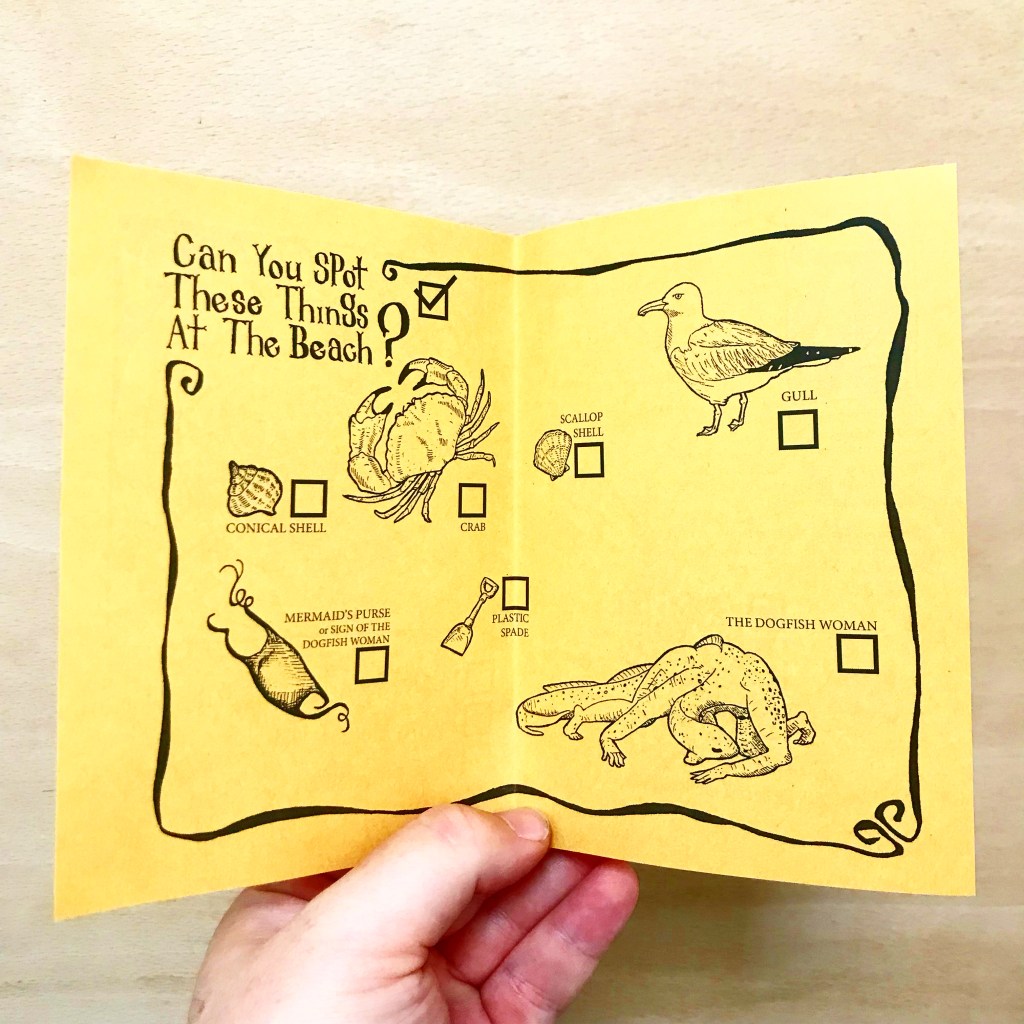 Can You Spot
These Things
At The Beach?
GULL
SCALLOP
SHELL
CONICAL SHELL
CRAB
MERMAID'S PURSE
or SIGN OF THE
DOGFISH WOMAN
PLASTIC
SPADE
THE DOGFISH WOMAN